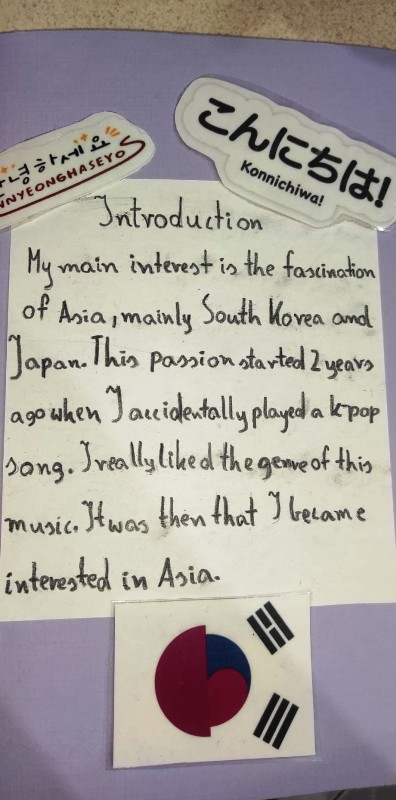 녕하세요
NNYEONGHASEYO
こんにちは!
Konnichiwa!
Introduction
My main interest is the fascination
of Asia, mainly South Korea and
Japan. This passion started 2 years
ago when I accidentally played a k-pop
song. I really liked the genre of this
music. It was then that I became
interested in Asia.